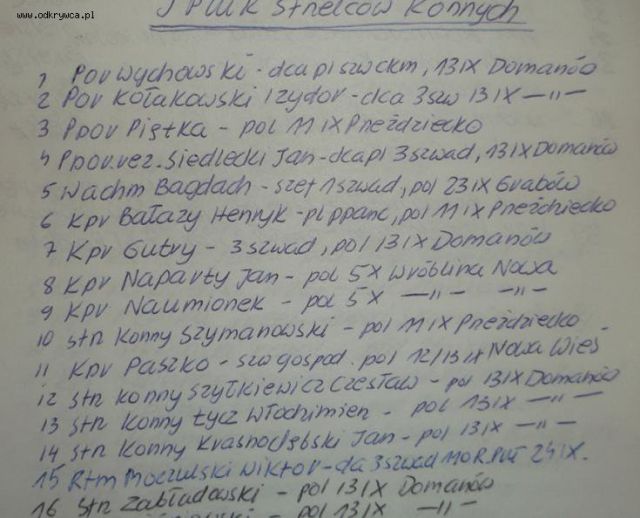 www.odkrywca.pl
Pułk Strzelców Konnych
1 Por Wychowski - dca pl szw ckm, 13 IX Domanów
2 Por Kołakowski Izydor - dca 3 szw 13 IX —„—
3 Ppor Piętka - pol 11 IX Przeździecko
4 Ppor. rez. Siedlecki Jan - dca pl 3 szwad, 13 IX Domanów
5 Wachm Bagdach - szef 1 szwad, pol 23 IX Grabów
6 Kpr Bałazy Henryk - pl ppanc, pol 11 IX Przeździecko
7 Kpr Gutry - 3 szwad, pol 13 IX Domanów
8 Kpr Naparty Jan - pol 5 X Wróblina Nowa
9 Kpr Naumionek - pol 5 X —„— —„—
10 Strz Konny Szymanowski - pol 11 IX Przeździecko
11 Kpr Paszko - szw gospod. pol 12/13 IX Nowa Wieś
12 Strz Konny Szyłkiewicz Czesław - pol 13 IX Domanów
13 Strz Konny Łycz Włodzimierz - pol 13 IX —„—
14 Strz Konny Krasnodębski Jan - pol 13 IX —„—
15 Rtm Moczulski Wiktor - dca 3 szwad 110 R. Puł 24 IX.
16 Strz Zabłudowski - pol 13 IX Domanów
- pol 13 IX —„—